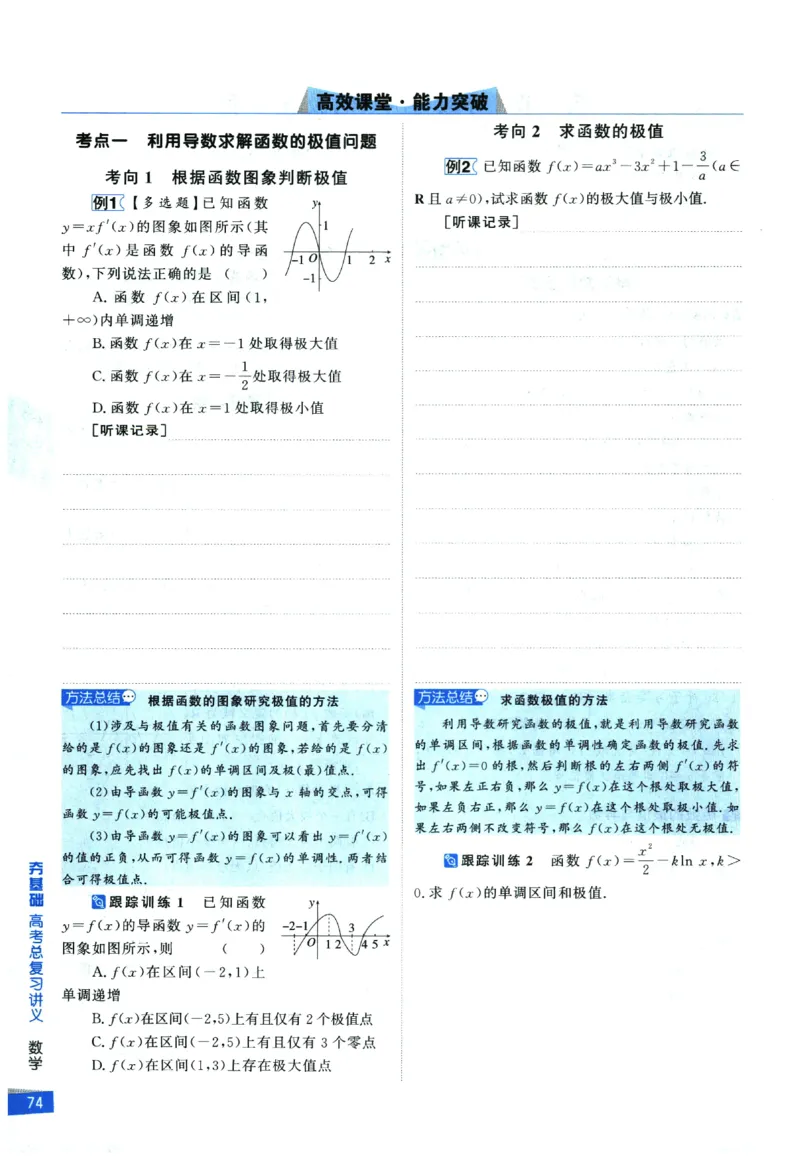 高效课堂·能力突破
考点一 利用导数求解函数的极值问题
考向 1 根据函数图象判断极值
例1 【多选题】已知函数
y=xf′(x)的图象如图所示(其
中 f′(x)是函数 f(x)的导函
数),下列说法正确的是 ( )
y
1
-1 O 1 2 x
-1
A. 函数 f(x)在区间(1,
+∞)内单调递增
B. 函数 f(x)在 x=-1 处取得极大值
C. 函数 f(x)在 x=-1/2处取得极大值
D. 函数 f(x)在 x=1 处取得极小值
[听课记录]
方法总结 根据函数的图象研究极值的方法
(1)涉及与极值有关的函数图象问题,首先要分清
给的是 f(x)的图象还是 f′(x)的图象,若给的是 f(x)
的图象,应先找出 f(x)的单调区间及极(最)值点.
(2)由导函数 y=f′(x)的图象与 x 轴的交点,可得
函数 y=f(x)的可能极值点.
(3)由导函数 y=f′(x)的图象可以看出 y=f′(x)
的值的正负,从而可得函数 y=f(x)的单调性. 两者结
合可得极值点.
跟踪训练 1 已知函数
y=f(x)的导函数 y=f′(x)的
图象如图所示,则 ( )
y
-2 -1 3
O 1 2 4 5 x
A. f(x)在区间(-2,1)上
单调递增
B. f(x)在区间(-2,5)上有且仅有 2 个极值点
C. f(x)在区间(-2,5)上有且仅有 3 个零点
D. f(x)在区间(1,3)上存在极大值点
考向 2 求函数的极值
例2 已知函数 f(x)=ax³-3x²+1-3/a(a∈
R 且 a≠0),试求函数 f(x)的极大值与极小值.
[听课记录]
方法总结 求函数极值的方法
利用导数研究函数的极值,就是利用导数研究函数
的单调区间,根据函数的单调性确定函数的极值. 先求
出 f′(x)=0 的根,然后判断根的左右两侧 f′(x)的符
号,如果左正右负,那么 y=f(x)在这个根处取极大值,
如果左负右正,那么 y=f(x)在这个根处取极小值. 如
果左右两侧不改变符号,那么 f(x)在这个根处无极值.
跟踪训练 2 函数 f(x)=x²/2-kln x,k>
0. 求 f(x)的单调区间和极值.
夯基础 高考总复习讲义 数学
74